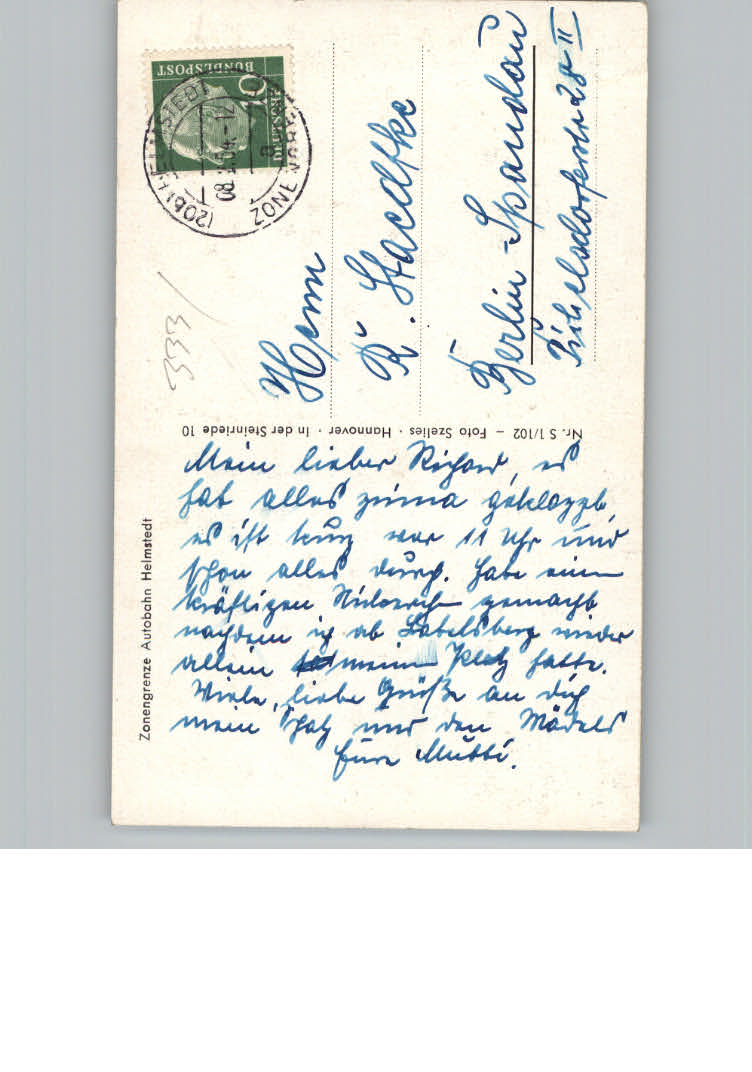 Zonengrenze Autobahn Helmstedt
Mein lieber Richard, es
hat alles prima geklappt,
es ist kurz vor 11 Uhr und
schon alles durch. Habe einen
kräftigen gemacht
nachdem ich ab Babelsberg wieder
allein meinen Platz hatte.
Viele, liebe Grüße an dich
mein Schatz und den Mädels
Eure Mutti.
Nr. S 1/102 – Foto Szelies · Hannover · In der Steinriede 10
DEUTSCHE
BUNDESPOST
10
(20b) HELMSTEDT
ZONENGRENZE
a
333/
Herrn
R. Staedtke
Berlin-Spandau
Pichelsdorferstr. 28 II